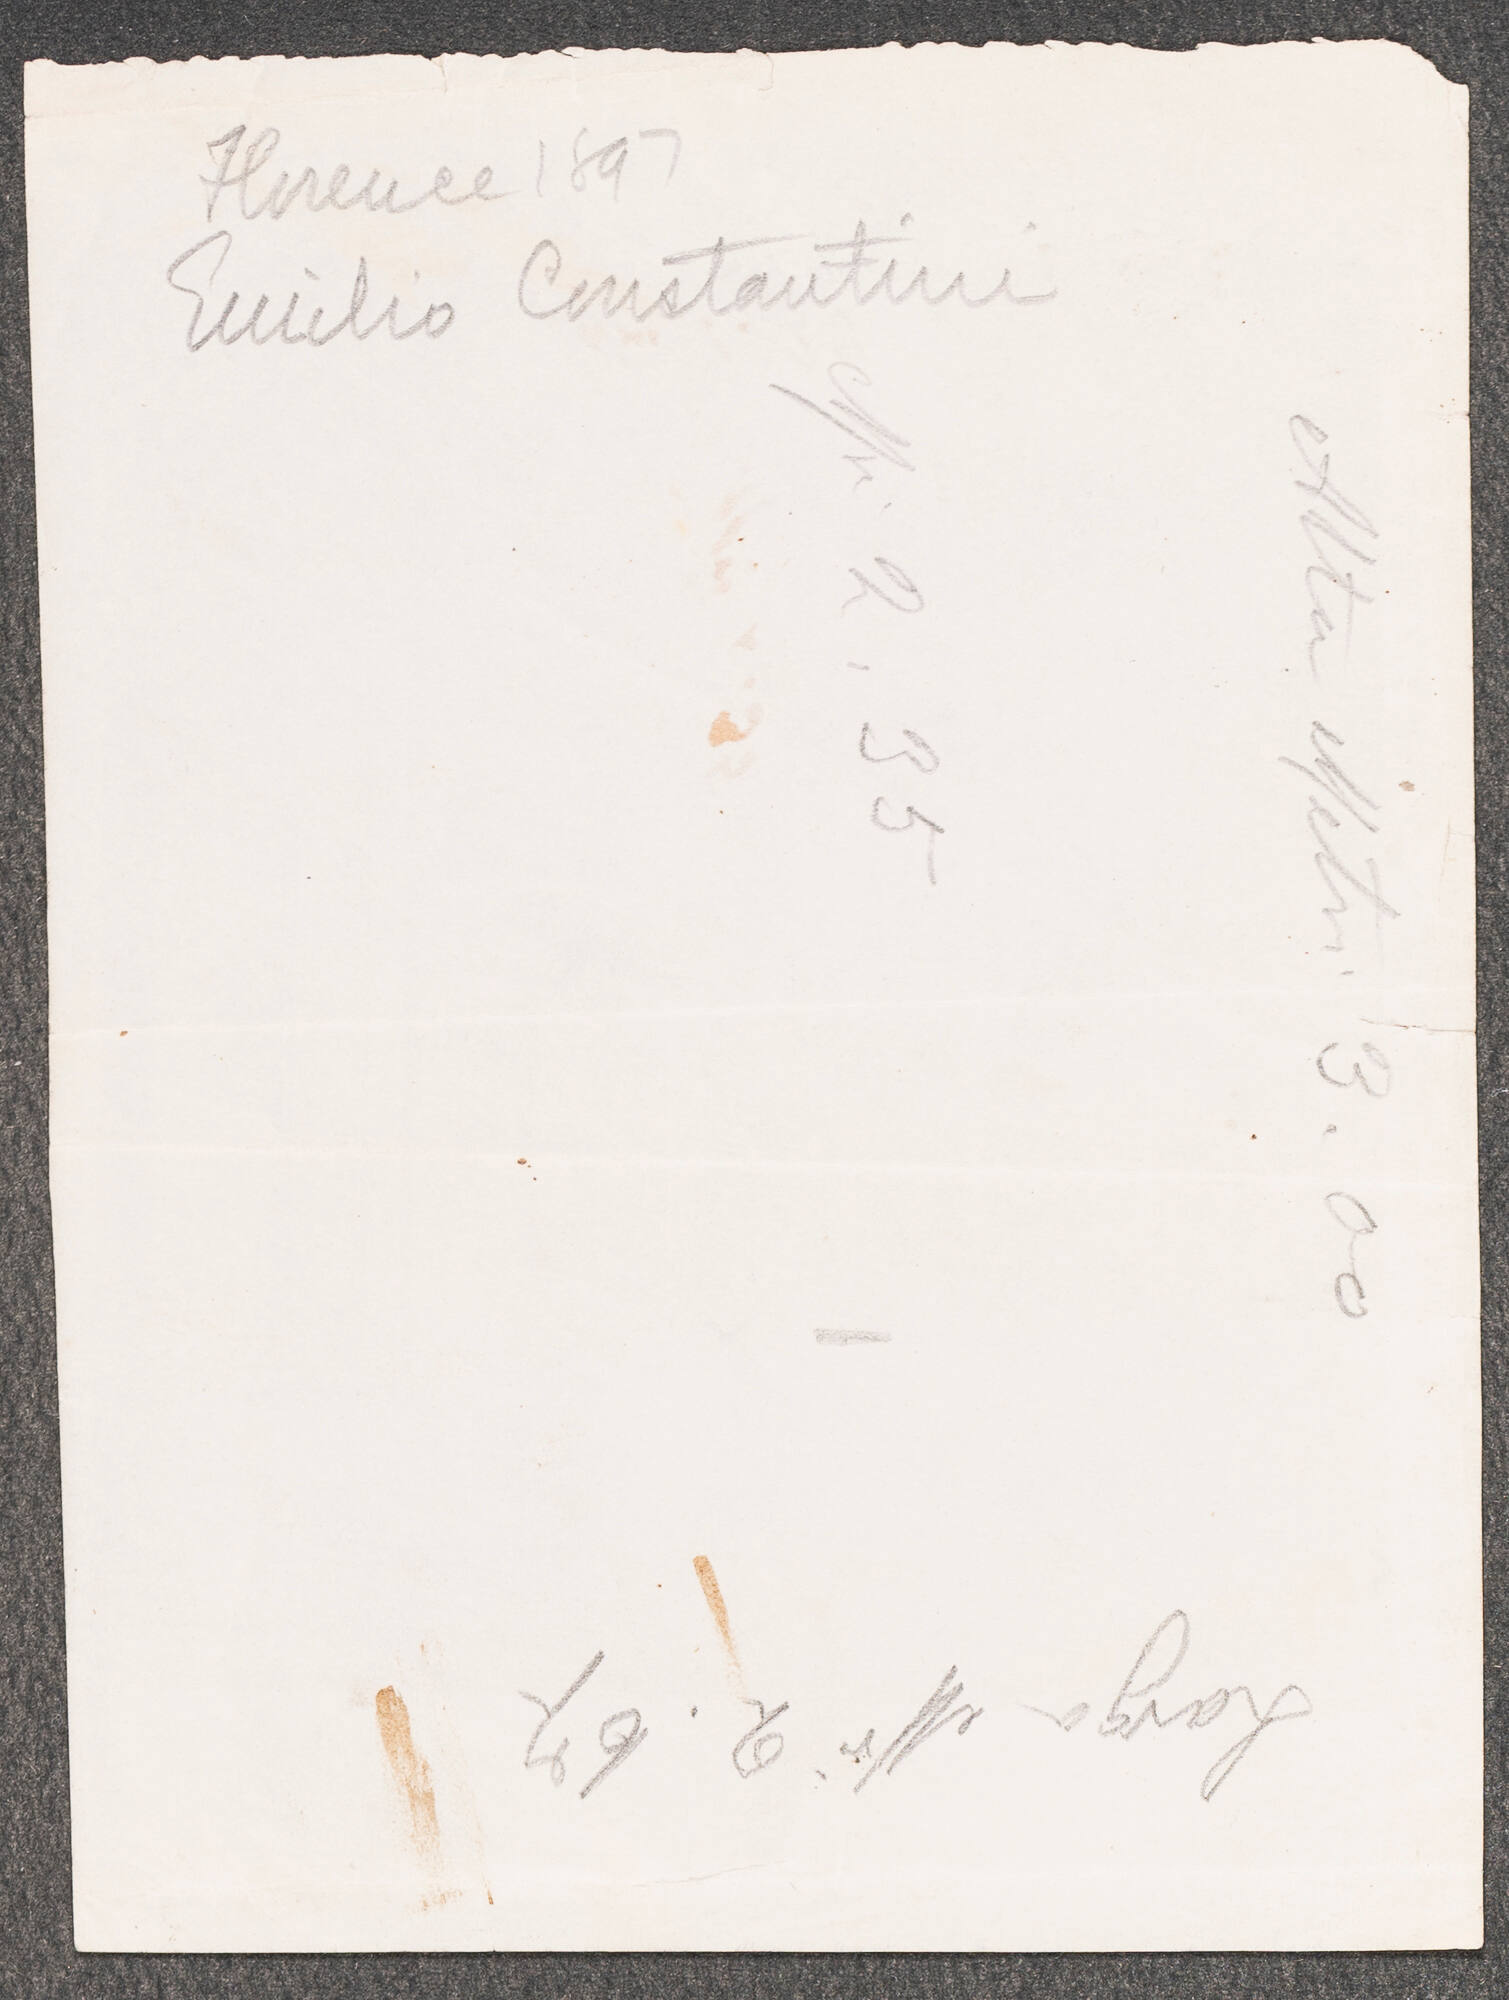 Florence 1897
Emilio Constantini
Mi. 2,35
Alta Metri 3.00
Larga Mr. 2.67